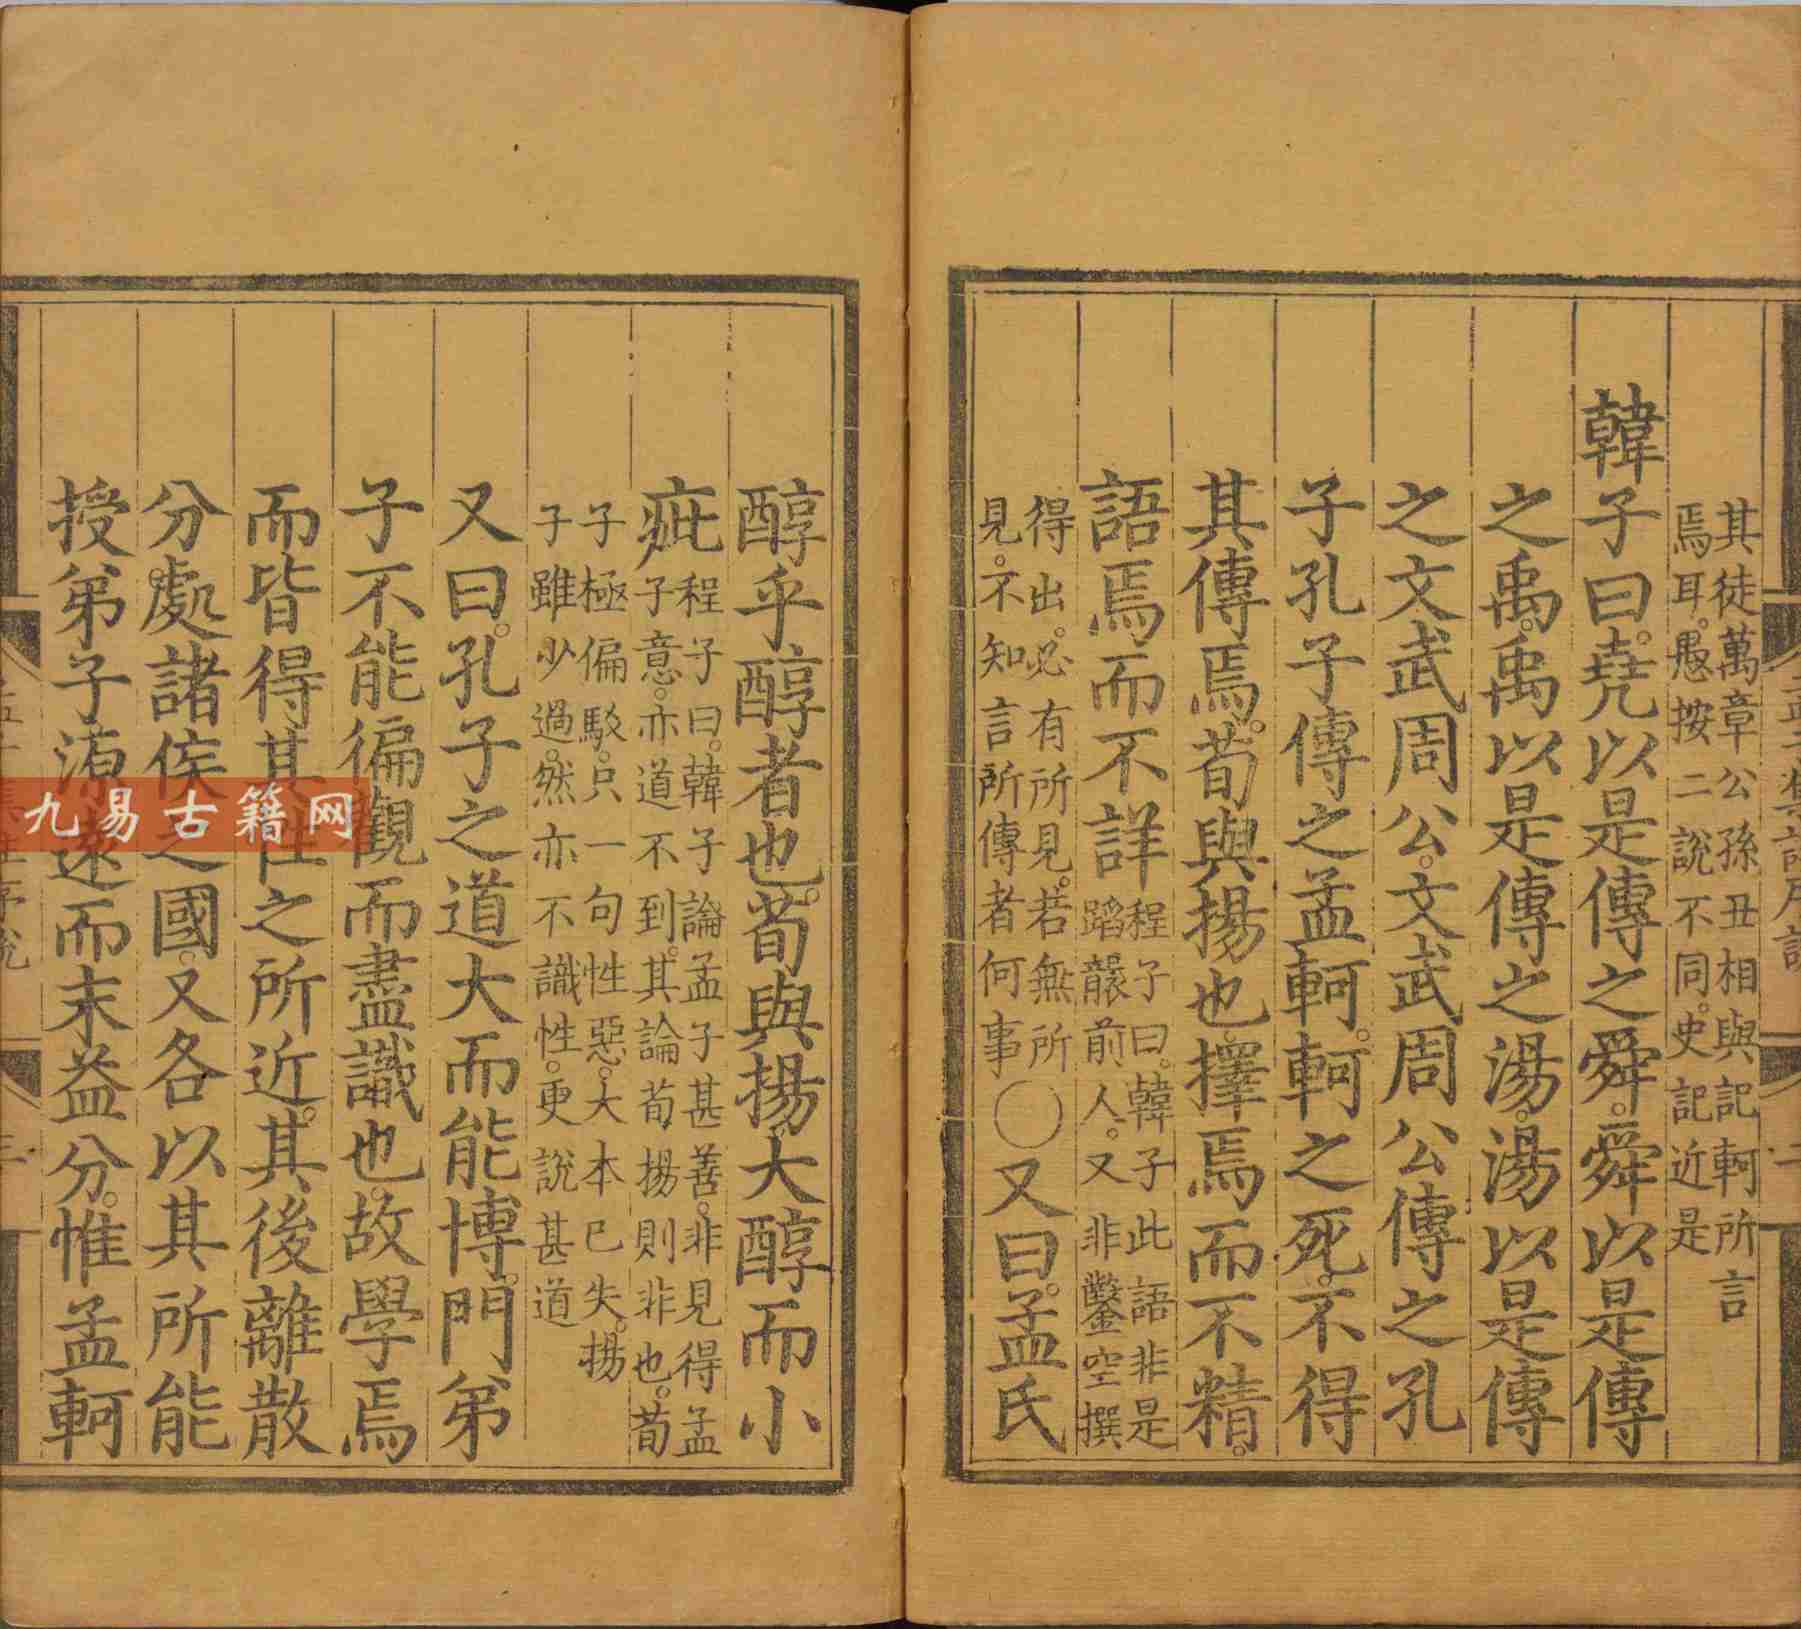 其徒萬章公孫丑相與記軻所言
焉耳。愚按二說不同。史記近是
韓子曰。堯以是傳之舜。舜以是傳
之禹。禹以是傳之湯。湯以是傳
之文武周公。文武周公傳之孔
子孔子傳之孟軻。軻之死。不得
其傳焉。荀與揚也。擇焉而不精。
語焉而不詳
程子曰。韓子此語非是
蹈襲前人。又非鑿空撰
得出。必有所見。若無所
見。不知言所傳者何事
○又曰。孟氏
醇乎醇者也。荀與揚。大醇而小
疵
程子曰。韓子論孟子甚善。非見得孟
子意。亦道不到。其論荀揚則非也。荀
子極偏駁。只一句性惡。大本已失。揚
子雖少過。然亦不識性。更說甚道
又曰。孔子之道大而能博。門弟
子不能徧觀而盡識也。故學焉
而皆得其性之所近。其後離散
分處諸侯之國。又各以其所能
授弟子源遠而末益分。惟孟軻
九易古籍网